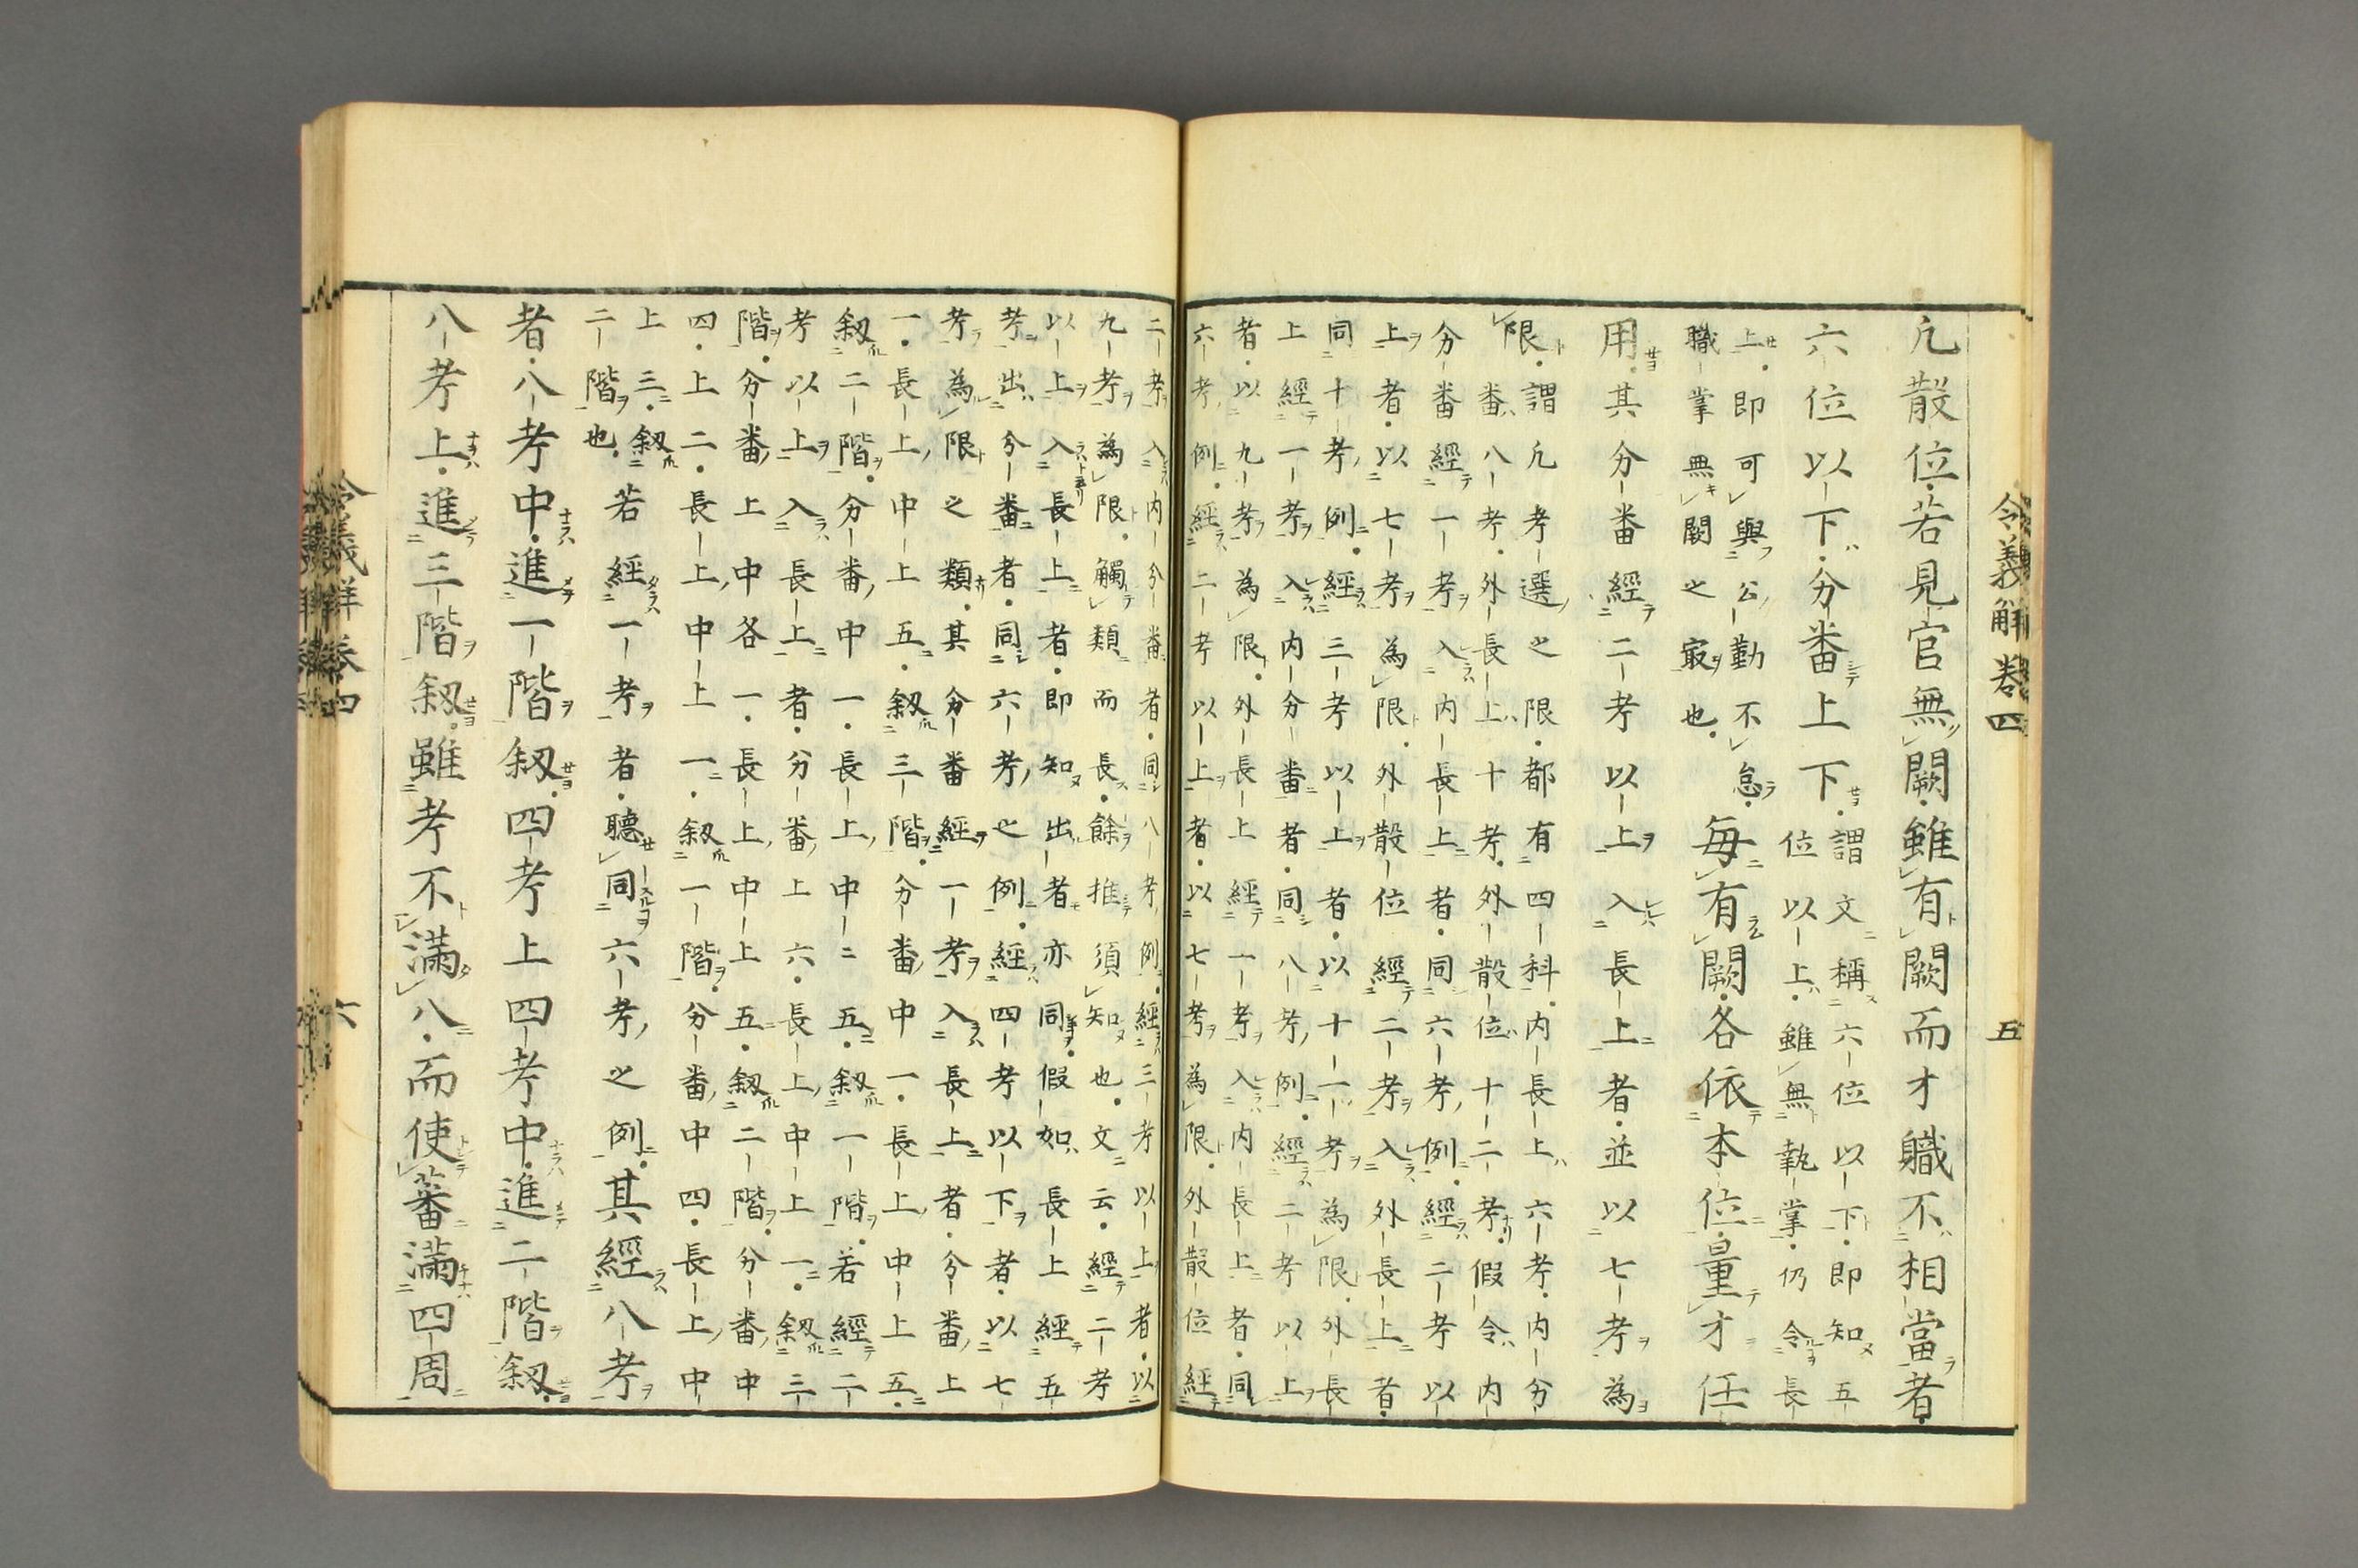 令義解卷四 五
凢散位若見官無闕雖有闕而才職不相當者
六位以下分番上下
謂文稱六位以下即知五
位以上雖無執掌仍令長
上即可與公勤不怠
職掌無闕之㝡也
毎有闕各依本位量才任
用其分番經二考以上入長上者並以七考為
限
謂凢考選之限都有四科内長上六考内分
番八考外長上十考外散位十二考假令内
分番經一考入内長上者同六考例經二考以
上者以七考為限外散位經二考入外長上者
同十考例經三考以上者以十一考為限外長
上經一考入内分番者同八考例經二考以上
者以九考為限外長上經一考入内長上者同
六考例經二考以上者以七考為限外散位經
二考入内分番者同八考例經三考以上者以
九考為限觸類而長餘推須知也文云經二考
以上入長上者即知出者亦同假如長上經五
考出分番者同六考之例經四考以下者以七
考為限之類其分番經一考入長上者分番上
一長上中上五叙三階分番中一長上中上五
叙二階分番中一長上中二五叙一階若經二
考以上入長上者分番上六長上中上一叙三
階分番上中各一長上中上五叙二階分番中
四上二長上中上一叙一階分番中四長上中
上三叙
二階也
若經一考者聽同六考之例其經八考
者八考中進一階叙四考上四考中進二階叙
八考上進三階叙雖考不滿八而使蕃滿四周
令義解卷四 六